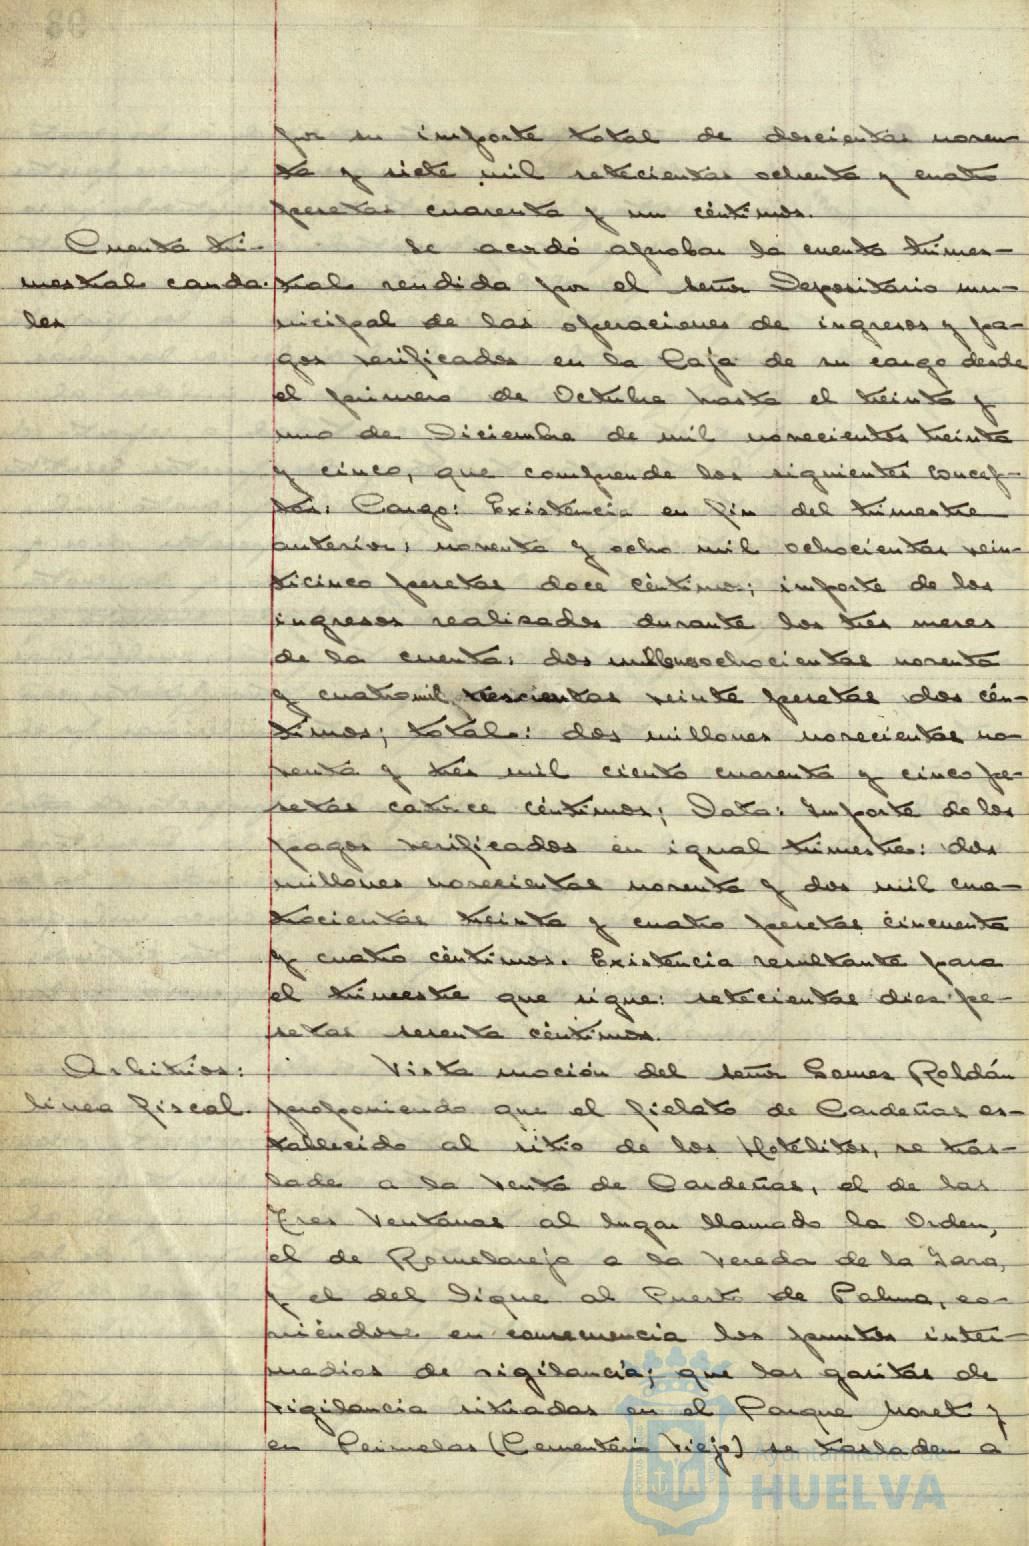 por su importe total de doscientas noven-
ta y siete mil setecientas ochenta y cuatro
pesetas cuarenta y un céntimos.
Cuenta tri-
mestral cauda-
les
Se acordó aprobar la cuenta trimes-
tral rendida por el señor Depositario mu-
nicipal de las operaciones de ingresos y pa-
gos verificados en la Caja de su cargo desde
el primero de Octubre hasta el treinta y
uno de Diciembre de mil novecientos treinta
y cinco, que comprende los siguientes concep-
tos: Cargo: Existencia en fin del trimestre
anterior, noventa y ocho mil ochocientas vein-
ticinco pesetas doce céntimos; importe de los
ingresos realizados durante los tres meses
de la cuenta: dos millones ochocientas noventa
y cuatro mil trescientas veinte pesetas dos cén-
timos; total: dos millones novecientas no-
venta y tres mil ciento cuarenta y cinco pe-
setas catorce céntimos; Data: Importe de los
pagos verificados en igual trimestre: dos
millones novecientas noventa y dos mil cua-
trocientas treinta y cuatro pesetas cincuenta
y cuatro céntimos. Existencia resultante para
el trimestre que sigue: setecientas diez pe-
setas sesenta céntimos.
Arbitrios:
línea fiscal.
Vista moción del señor Gomes Roldán
proponiendo que el fielato de Cardeñas es-
tablecido al sitio de los Hotelitos, se tras-
lade a la Venta de Cardeñas, el de las
Tres Ventanas al lugar llamado la Orden,
el de Romelarejo a la Vereda de la
y el del Dique al Puerto de Palma, co-
rriéndose en consecuencia los puntos inter-
medios de vigilancia; que las garitas de
vigilancia situadas en el Parque Moret y
en (Cementerio Viejo) se trasladen a
Ayuntamiento de
HUELVA